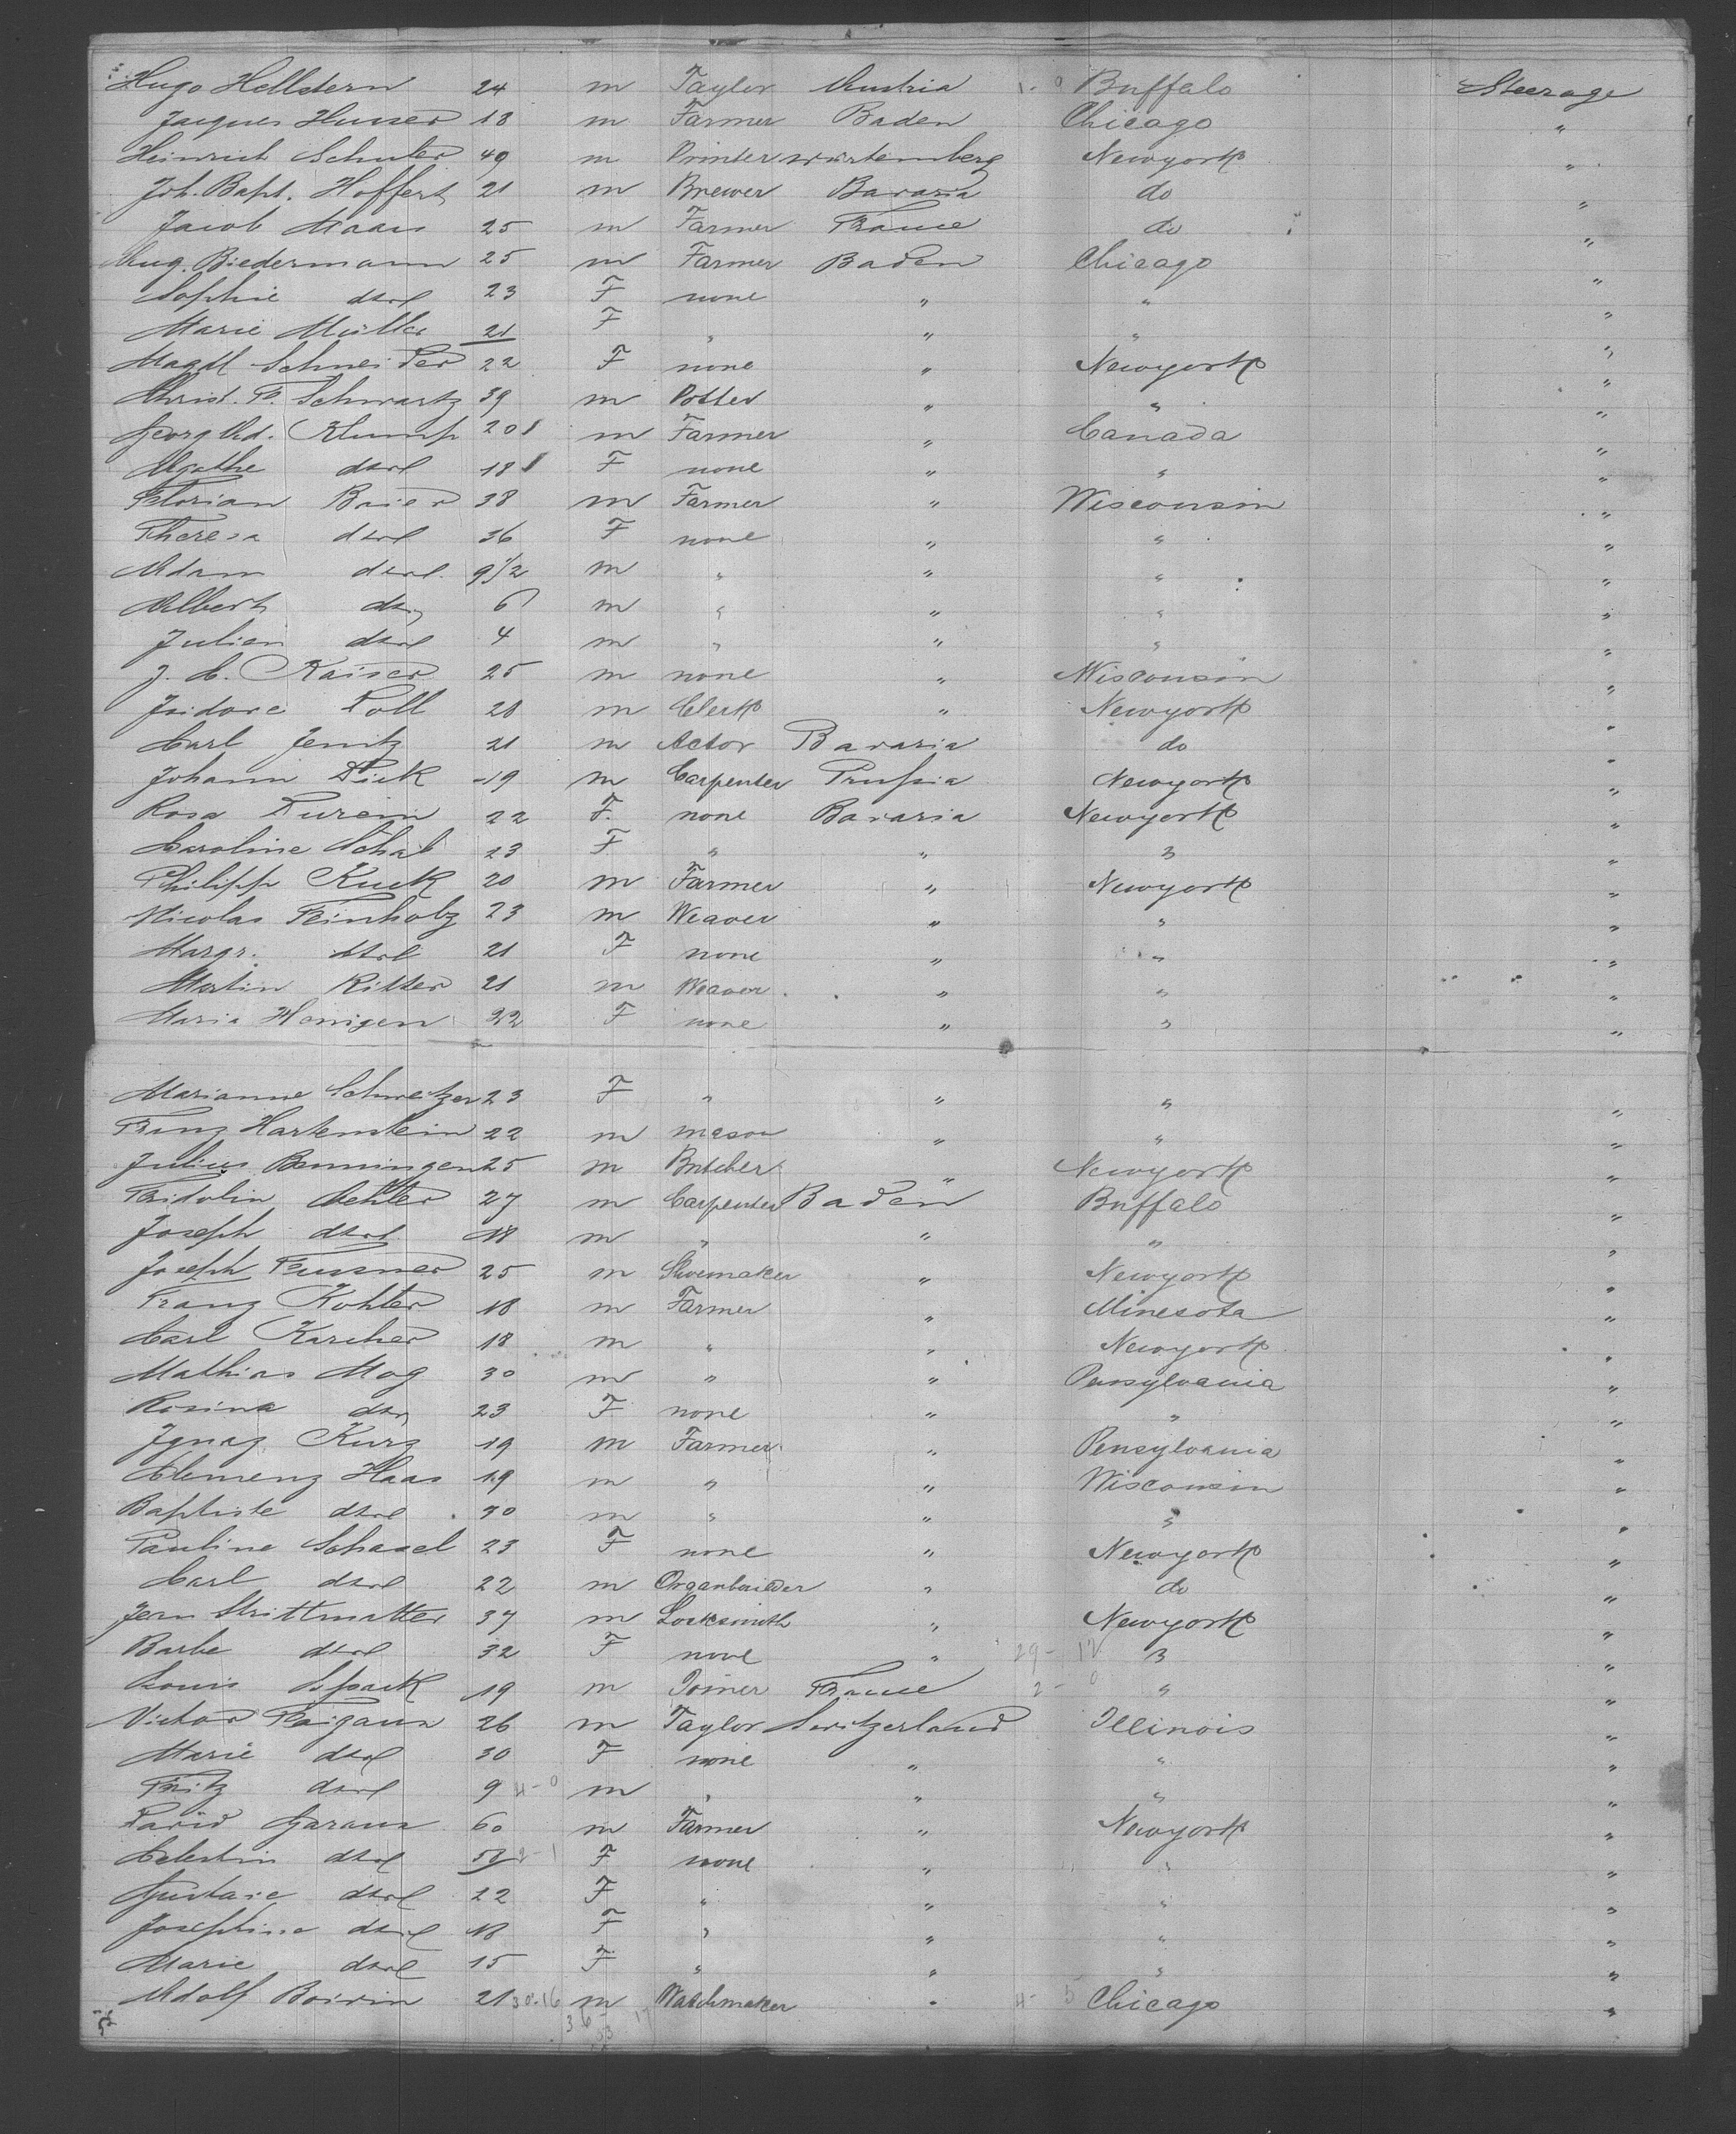 Hugo Hellstern 24 m Taylor Austria Buffalo Steerage
Jaques Huser 18 m Farmer Baden Chicago "
Heinrich Schuler 49 m Printer würtemberg Newyork "
Joh. Bapt. Hoffert 21 m Brewer Bavaria do "
Jacob Maas 25 m Farmer France do "
Aug. Biedermann 25 m Farmer Baden Chicago "
Sophie dsrl 23 F none " " "
Marie Müller 21 F " " " "
Magdl Schneider 22 F none " Newyork "
Christ. F. Schwartz 39 m Potter " " "
Georg Ad. Klump 20 m Farmer " Canada "
Agathe dsrl 18 F none " " "
Florian Baier 38 m Farmer " Wisconsin "
Theresa dsrl 36 F none " " "
Adam dsrl. 9 1/2 m " " " "
Albert dsr 6 m " " " "
Julian dsrl 4 m " " " "
J. C. Kaiser 25 m none " Wisconsin "
Isidore Doll 28 m Clerk " Newyork "
Carl Jenitz 21 m Actor Bavaria do "
Johann Dick 19 m Carpenter Prussia Newyork "
Rosa 22 F. none Bavaria Newyork "
Caroline Schal 23 F " " " "
Philipp Kuck 20 m Farmer " Newyork "
Nicolas Feinholz 23 m Weaver " " "
Margr. dsrl 21 F none " " "
Martin Ritter 21 m Weaver " " "
Maria Henigen 22 F none " " "
Marianne Schweitzer 23 F " " " "
Franz Hartenstein 22 m mason " " "
Julius Benningen 25 m Butcher " Newyork "
Fridolin Aehler 27 m Carpenter Baden Buffalo "
Joseph dsrl 18 m " " " "
Joseph Fessner 25 m Shoemaker " Newyork "
Franz Kohler 18 m Farmer " Minesota "
Carl Karcher 18 m " " Newyork "
Mathias Mog 30 m " " Pensylvania "
Rosina dsr 23 F none " " "
Ignaz Kurz 19 m Farmer " Pensylvania "
Clemenz Haas 19 m " " Wisconsin "
Baptiste dsrl 30 m " " " "
Pauline Schasel 23 F none " Newyork "
Carl dsrl 22 m Organbuilder " do "
Jean Strittmatter 37 m Locksmith " Newyork "
Barbe dsrl 32 F none " 29 - 17 " "
Louis Spack 19 m Joiner France 2 - 0 " "
Victor 26 m Taylor Switzerland Illinois "
Marie dsrl 30 F none " " "
Fritz dsrl 9 4-0 m " " " "
David Garaux 60 m Farmer " Newyork "
Celestin dsrl 58 2-1 F none " " "
Gustave dsrl 22 F " " " "
Josephine dsrl 18 F " " " "
Marie dsrl 15 F " " " "
Adolf Boivin 21 30.16 m Watchmaker " 4- 5 Chicago "
36 53 17